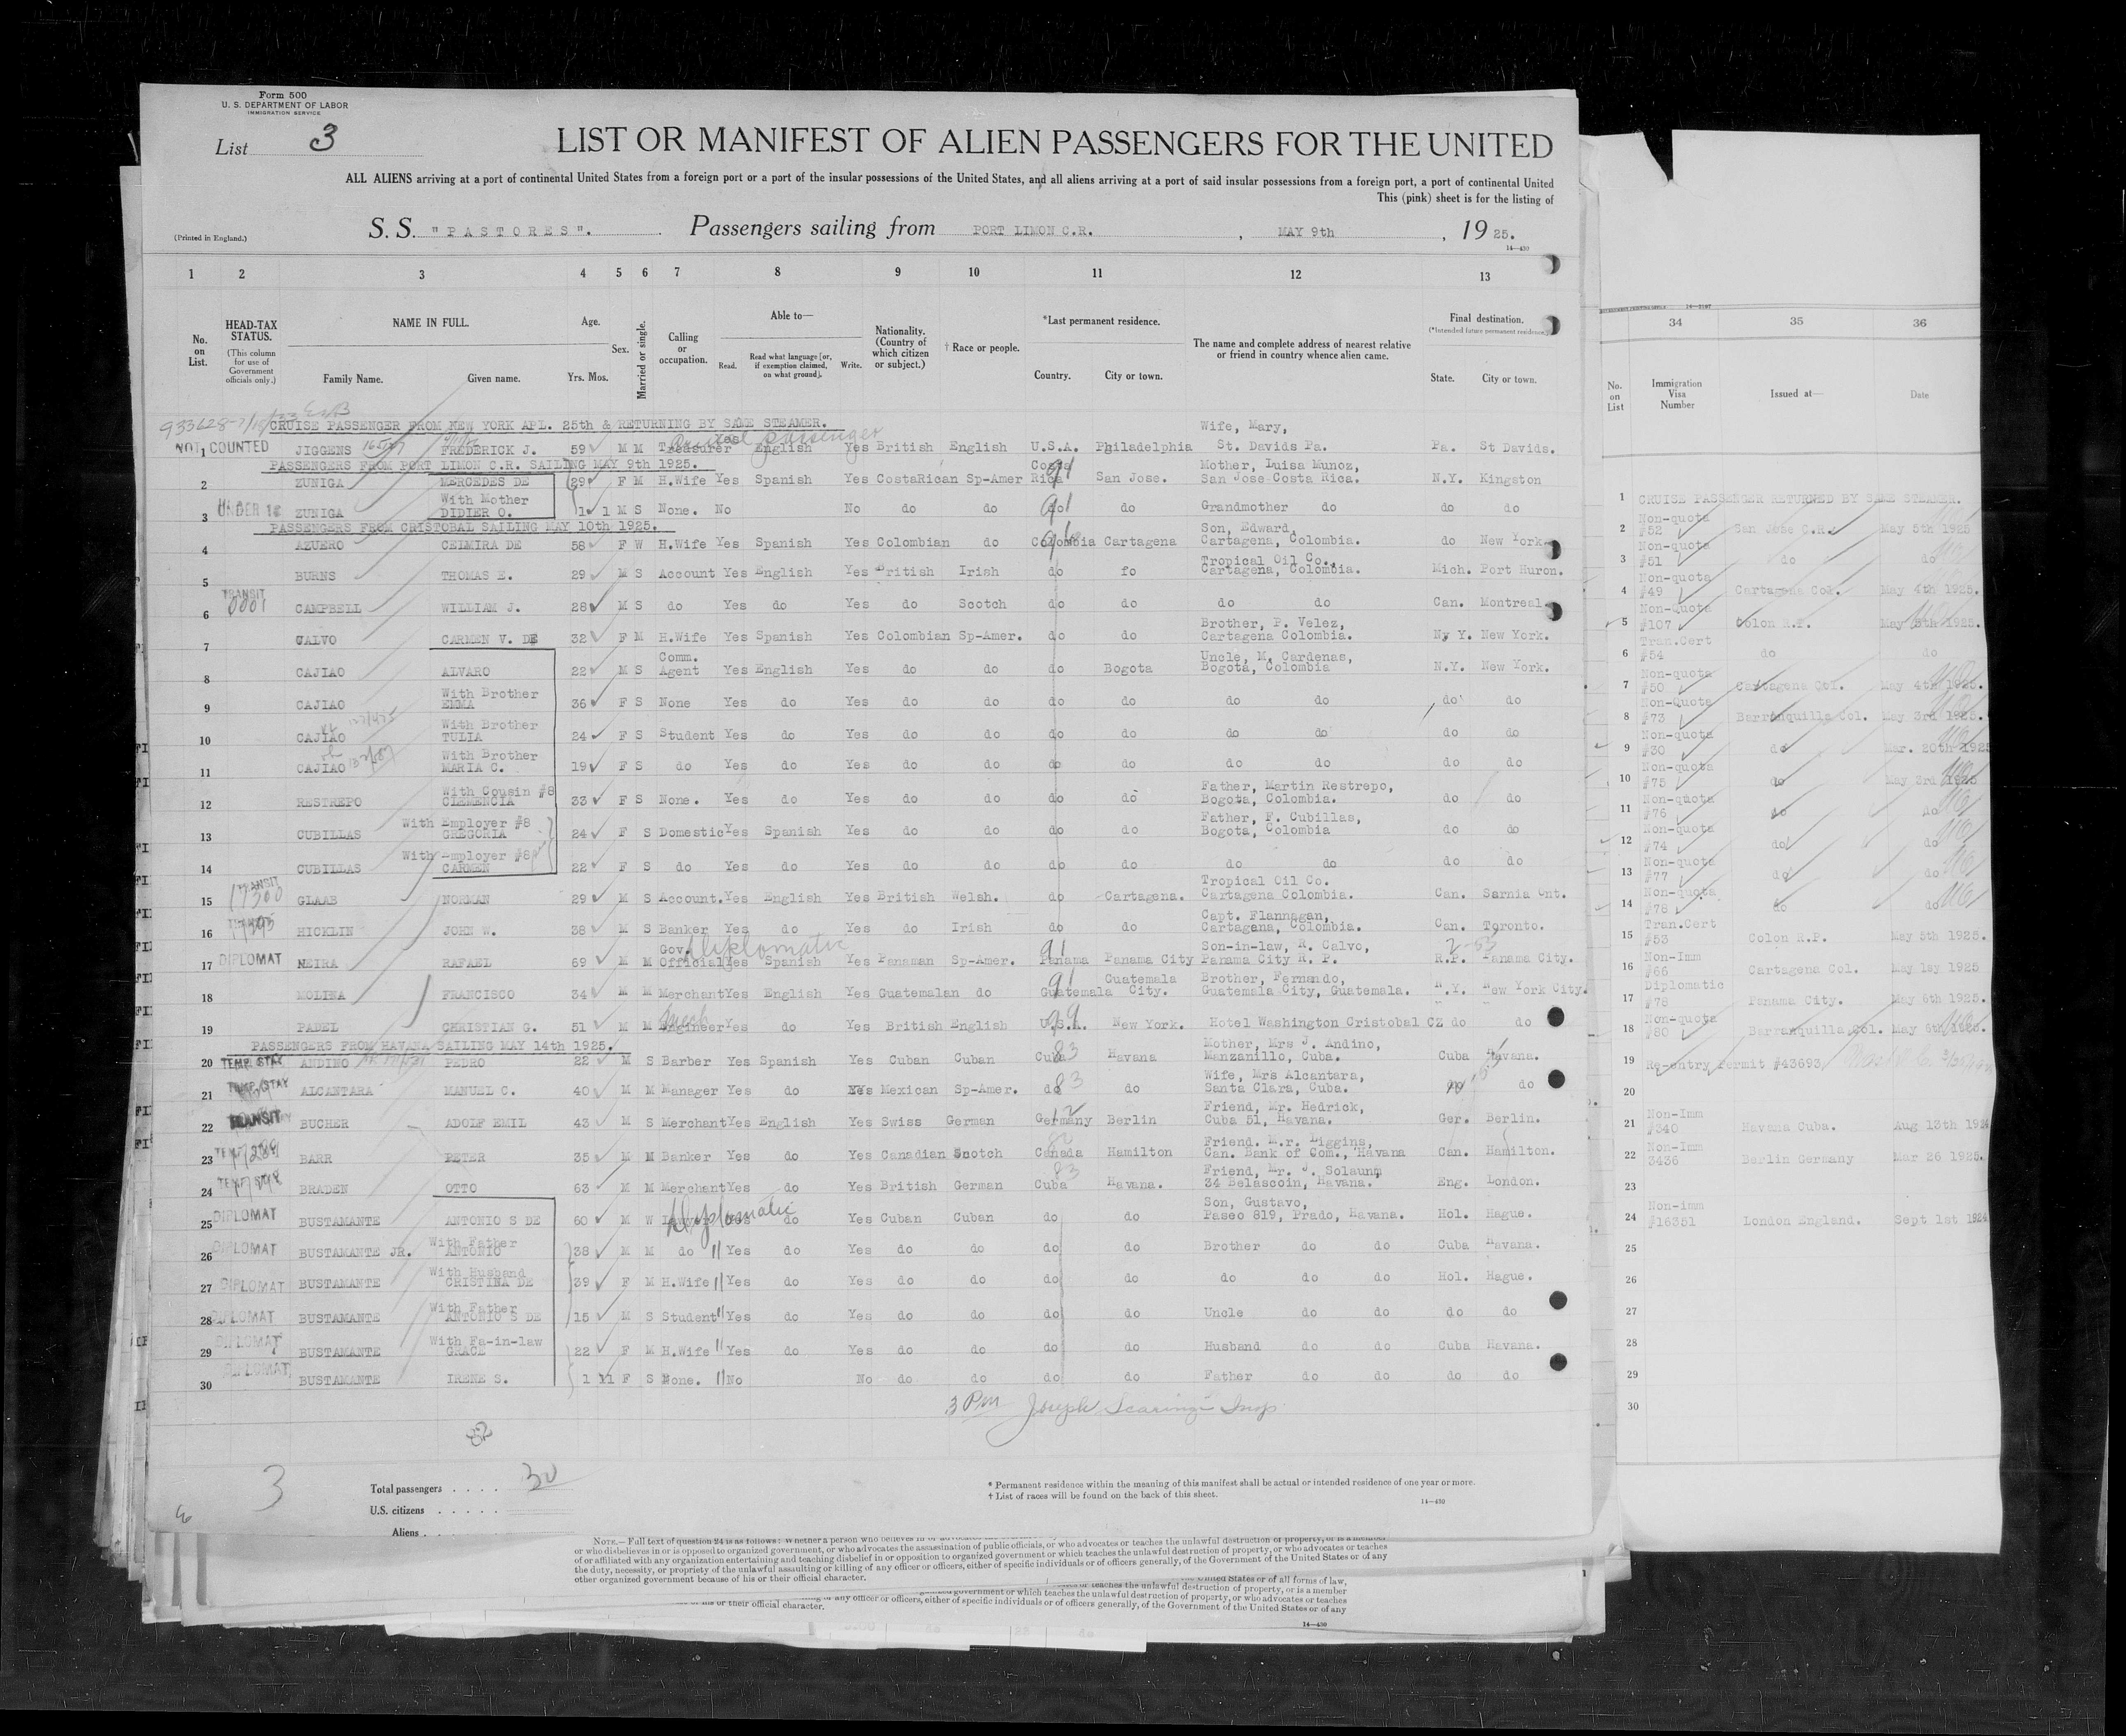 Form 500
U. S. DEPARTMENT OF LABOR
IMMIGRATION SERVICE
List 3
LIST OR MANIFEST OF ALIEN PASSENGERS FOR THE UNITED
ALL ALIENS arriving at a port of continental United States from a foreign port or a port of the insular possessions of the United States, and all aliens arriving at a port of said insular possessions from a foreign port, a port of continental United
This (pink) sheet is for the listing of
(Printed in England.)
S. S. "PASTORES". Passengers sailing from PORT LIMON C.R. , MAY 9th , 1925.
14—430
1 2 3 4 5 6 7 8 9 10 11 12 13
No. on List.
HEAD-TAX STATUS.
(This column for use of Government officials only.)
NAME IN FULL.
Family Name. Given name.
Age.
Yrs. Mos.
Sex.
Married or single.
Calling or occupation.
Able to—
Read. Read what language [or, if exemption claimed, on what ground]. Write.
Nationality. (Country of which citizen or subject.)
† Race or people.
*Last permanent residence.
Country. City or town.
The name and complete address of nearest relative or friend in country whence alien came.
Final destination.
(*Intended future permanent residence.)
State. City or town.
CRUISE PASSENGER FROM NEW YORK APL. 25th & RETURNING BY SAME STEAMER.
Wife, Mary,
NOT COUNTED 1 JIGGENS FREDERICK J. 59 M M Treasurer Yes English Yes British English U.S.A. Philadelphia St. Davids Pa. Pa. St Davids.
PASSENGERS FROM PORT LIMON C.R. SAILING MAY 9th 1925.
Costa Mother, Luisa Munoz,
2 ZUNIGA MERCEDES DE 29 F M H.Wife Yes Spanish Yes CostaRican Sp-Amer Rica San Jose. San Jose Costa Rica. N.Y. Kingston
With Mother
3 UNDER 16 ZUNIGA DIDIER O. 1 1 M S None. No No do do do do Grandmother do do do
PASSENGERS FROM CRISTOBAL SAILING MAY 10th 1925.
Son, Edward,
4 AZUERO CELMIRA DE 58 F W H.Wife Yes Spanish Yes Colombian do Colombia Cartagena Cartagena, Colombia. do New York.
Tropical Oil Co.,
5 BURNS THOMAS E. 29 M S Account Yes English Yes British Irish do fo Cartagena, Colombia. Mich. Port Huron.
TRANSIT
6 CAMPBELL WILLIAM J. 28 M S do Yes do Yes do Scotch do do do do Can. Montreal
Brother, P. Velez,
7 CALVO CARMEN V. DE 32 F M H.Wife Yes Spanish Yes Colombian Sp-Amer. do do Cartagena Colombia. Ny Y. New York.
Comm. Uncle, M. Cardenas,
8 CAJIAO ALVARO 22 M S Agent Yes English Yes do do do Bogota Bogota, Colombia N.Y. New York.
With Brother
9 CAJIAO EMMA 36 F S None Yes do Yes do do do do do do do do
With Brother
10 CAJIAO TULIA 24 F S Student Yes do Yes do do do do do do do do
With Brother
11 CAJIAO MARIA C. 19 F S do Yes do Yes do do do do do do do do
With Cousin #8 Father, Martin Restrepo,
12 RESTREPO CLEMENCIA 33 F S None. Yes do Yes do do do do Bogota, Colombia. do do
With Employer #8 Father, F. Cubillas,
13 CUBILLAS GREGORIA 24 F S Domestic Yes Spanish Yes do do do do Bogota, Colombia do do
With Employer #8
14 CUBILLAS CARMEN 22 F S do Yes do Yes do do do do do do do do
TRANSIT Tropical Oil Co.
15 GLAAB NORMAN 29 M S Account. Yes English Yes British Welsh. do Cartagena. Cartagena Colombia. Can. Sarnia Ont.
TRANSIT Capt. Flannagan,
16 HICKLIN JOHN W. 38 M S Banker Yes do Yes do Irish do do Cartagena, Colombia. Can. Toronto.
Gov. Diplomatic Son-in-law, R. Calvo,
17 DIPLOMAT NEIRA RAFAEL 69 M M Official Yes Spanish Yes Panaman Sp-Amer. Panama Panama City Panama City R. P. R.P. Panama City.
Guatemala Brother, Fernando,
18 MOLINA FRANCISCO 34 M M Merchant Yes English Yes Guatemalan do Guatemala City. Guatemala City, Guatemala. N.Y. New York City.
19 PADEL CHRISTIAN G. 51 M M Engineer Yes do Yes British English U.S.A. New York. Hotel Washington Cristobal CZ do do
PASSENGERS FROM HAVANA SAILING MAY 14th 1925.
Mother, Mrs J. Andino,
20 TEMP. STAY ANDINO PEDRO 22 M S Barber Yes Spanish Yes Cuban Cuban Cuba Havana Manzanillo, Cuba. Cuba Havana.
Wife, Mrs Alcantara,
21 TEMP. STAY ALCANTARA MANUEL C. 40 M M Manager Yes do Yes Mexican Sp-Amer. do do Santa Clara, Cuba. do do
Friend, Mr. Hedrick,
22 TRANSIT BUCHER ADOLF EMIL 43 M S Merchant Yes English Yes Swiss German Germany Berlin Cuba 51, Havana. Ger. Berlin.
Friend. M.r. Liggins,
23 BARR PETER 35 M M Banker Yes do Yes Canadian Scotch Canada Hamilton Can. Bank of Com., Havana Can. Hamilton.
Friend, Mr. J. Solaunm
24 BRADEN OTTO 63 M M Merchant Yes do Yes British German Cuba Havana. 34 Belascoin, Havana. Eng. London.
Diplomatic Son, Gustavo,
25 DIPLOMAT BUSTAMANTE ANTONIO S DE 60 M W Lawyer Yes do Yes Cuban Cuban do do Paseo 819, Prado, Havana. Hol. Hague.
With Father
26 DIPLOMAT BUSTAMANTE JR. ANTONIO 38 M M do " Yes do Yes do do do do Brother do do Cuba Havana.
With Husband
27 DIPLOMAT BUSTAMANTE CRISTINA DE 39 F M H.Wife " Yes do Yes do do do do do do do Hol. Hague.
With Father
28 DIPLOMAT BUSTAMANTE ANTONIO S DE 15 M S Student " Yes do Yes do do do do Uncle do do do do
With Fa-in-law
29 DIPLOMAT BUSTAMANTE GRACE 22 F M H.Wife " Yes do Yes do do do do Husband do do Cuba Havana.
30 DIPLOMAT BUSTAMANTE IRENE S. 1 11 F S None. " No No do do do do Father do do do do
3 Pm Joseph Scaringi Insp
82
3
Total passengers . . . . . 30
U.S. citizens . . . . .
Aliens .
* Permanent residence within the meaning of this manifest shall be actual or intended residence of one year or more.
† List of races will be found on the back of this sheet.
14—430
34 35 36
No. on List
Immigration Visa Number
Issued at—
Date
1 CRUISE PASSENGER RETURNED BY SAME STEAMER.
2 Non-quota #52 San Jose C.R. May 5th 1925
3 Non-quota #51 do do
4 Non-quota #49 Cartagena Col. May 4th 1925.
5 Non-Quota #107 Colon R.P. May 5th 1925.
6 Tran.Cert #54 do do
7 Non-quota #50 Cartagena Col. May 4th 1925.
8 Non-Quota #73 Barranquilla Col. May 3rd 1925.
9 Non-quota #30 do Mar. 20th 1925
10 Non-quota #75 do May 3rd 1925
11 Non-quota #76 do do
12 Non-quota #74 do do
13 Non-quota #77 do do
14 Non-quota #78 do do
15 Tran.Cert #53 Colon R.P. May 5th 1925.
16 Non-Imm #66 Cartagena Col. May 1sy 1925
17 Diplomatic #78 Panama City. May 6th 1925.
18 Non-quota #80 Barranquilla Col. May 6th 1925.
19 Re-entry Permit #43693
20
21 Non-Imm #240 Havana Cuba. Aug 13th 1924
22 Non-Imm 3436 Berlin Germany Mar 26 1925.
23
24 Non-imm #16351 London England. Sept 1st 1924
25
26
27
28
29
30
NOTE.— Full text of question 24 is as follows: Whether a person who believes in or advocates the
or who disbelieves in or is opposed to organized government, or who advocates the assassination of public officials, or who advocates or teaches the unlawful destruction of property, or is a member
of or affiliated with any organization entertaining and teaching disbelief in or opposition to organized government or which teaches the unlawful destruction of property, or who advocates or teaches
the duty, necessity, or propriety of the unlawful assaulting or killing of any officer or officers, either of specific individuals or of officers generally, of the Government of the United States or of any
other organized government because of his or their official character.
United States or of all forms of law,
or teaches the unlawful destruction of property, or is a member
government or which teaches the unlawful destruction of property, or who advocates or teaches
any officer or officers, either of specific individuals or of officers generally, of the Government of the United States or of any
or their official character.
14—430